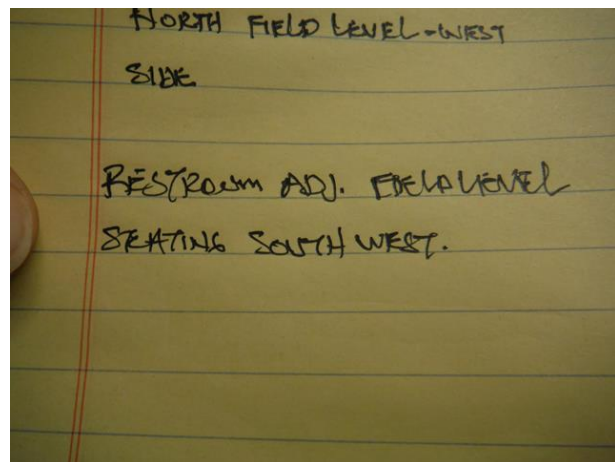 NORTH FIELD LEVEL-WEST
SIDE
RESTROOM ADJ. FIELD LEVEL
SEATING SOUTH WEST.